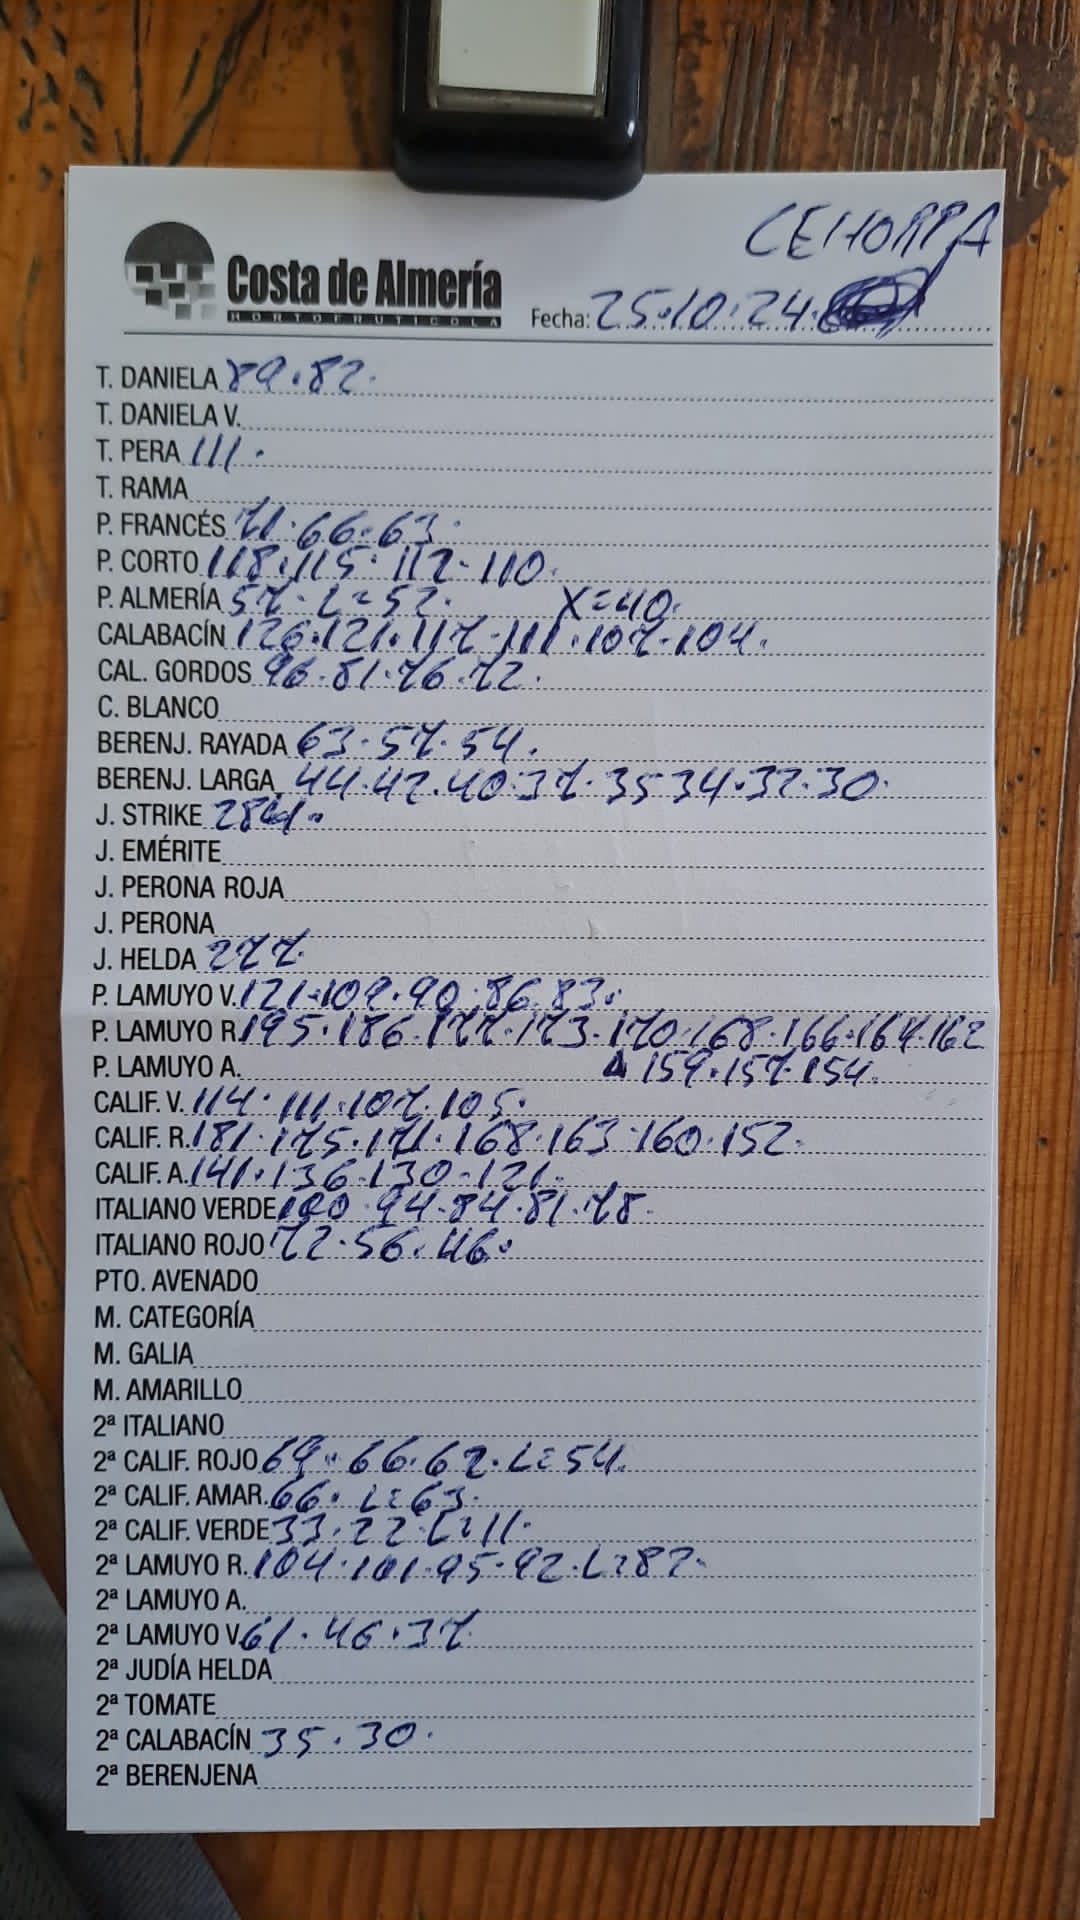 CEHORPA
Costa de Almería
HORTOFRUTICOLA
Fecha: 25.10.24.
T. DANIELA 89.82.
T. DANIELA V.
T. PERA 111.
T. RAMA
P. FRANCÉS 71.66.63.
P. CORTO 118.115.112.110.
P. ALMERÍA 57. L=52. X=40.
CALABACÍN 126.121.117.111.107.104.
CAL. GORDOS 96.81.76.72.
C. BLANCO
BERENJ. RAYADA 63.57.54.
BERENJ. LARGA 44.42.40.37.35 34.32.30.
J. STRIKE
J. EMÉRITE
J. PERONA ROJA
J. PERONA
J. HELDA 277.
P. LAMUYO V. 121.109.90.86.83.
P. LAMUYO R. 195.186.177.173.170.168.166.164.162
P. LAMUYO A. 159.157.154.
CALIF. V. 114.111.107.105.
CALIF. R. 181.175.171.168.163.160.152.
CALIF. A. 141.136.130.121.
ITALIANO VERDE 100.94.84.81.78.
ITALIANO ROJO 72.56.46.
PTO. AVENADO
M. CATEGORÍA
M. GALIA
M. AMARILLO
2ª ITALIANO
2ª CALIF. ROJO 69.66.62.L=54.
2ª CALIF. AMAR. 66. L=63.
2ª CALIF. VERDE 33.22.L=11.
2ª LAMUYO R. 104.101.95.92.L=87.
2ª LAMUYO A.
2ª LAMUYO V. 61.46.37.
2ª JUDÍA HELDA
2ª TOMATE
2ª CALABACÍN 35.30.
2ª BERENJENA